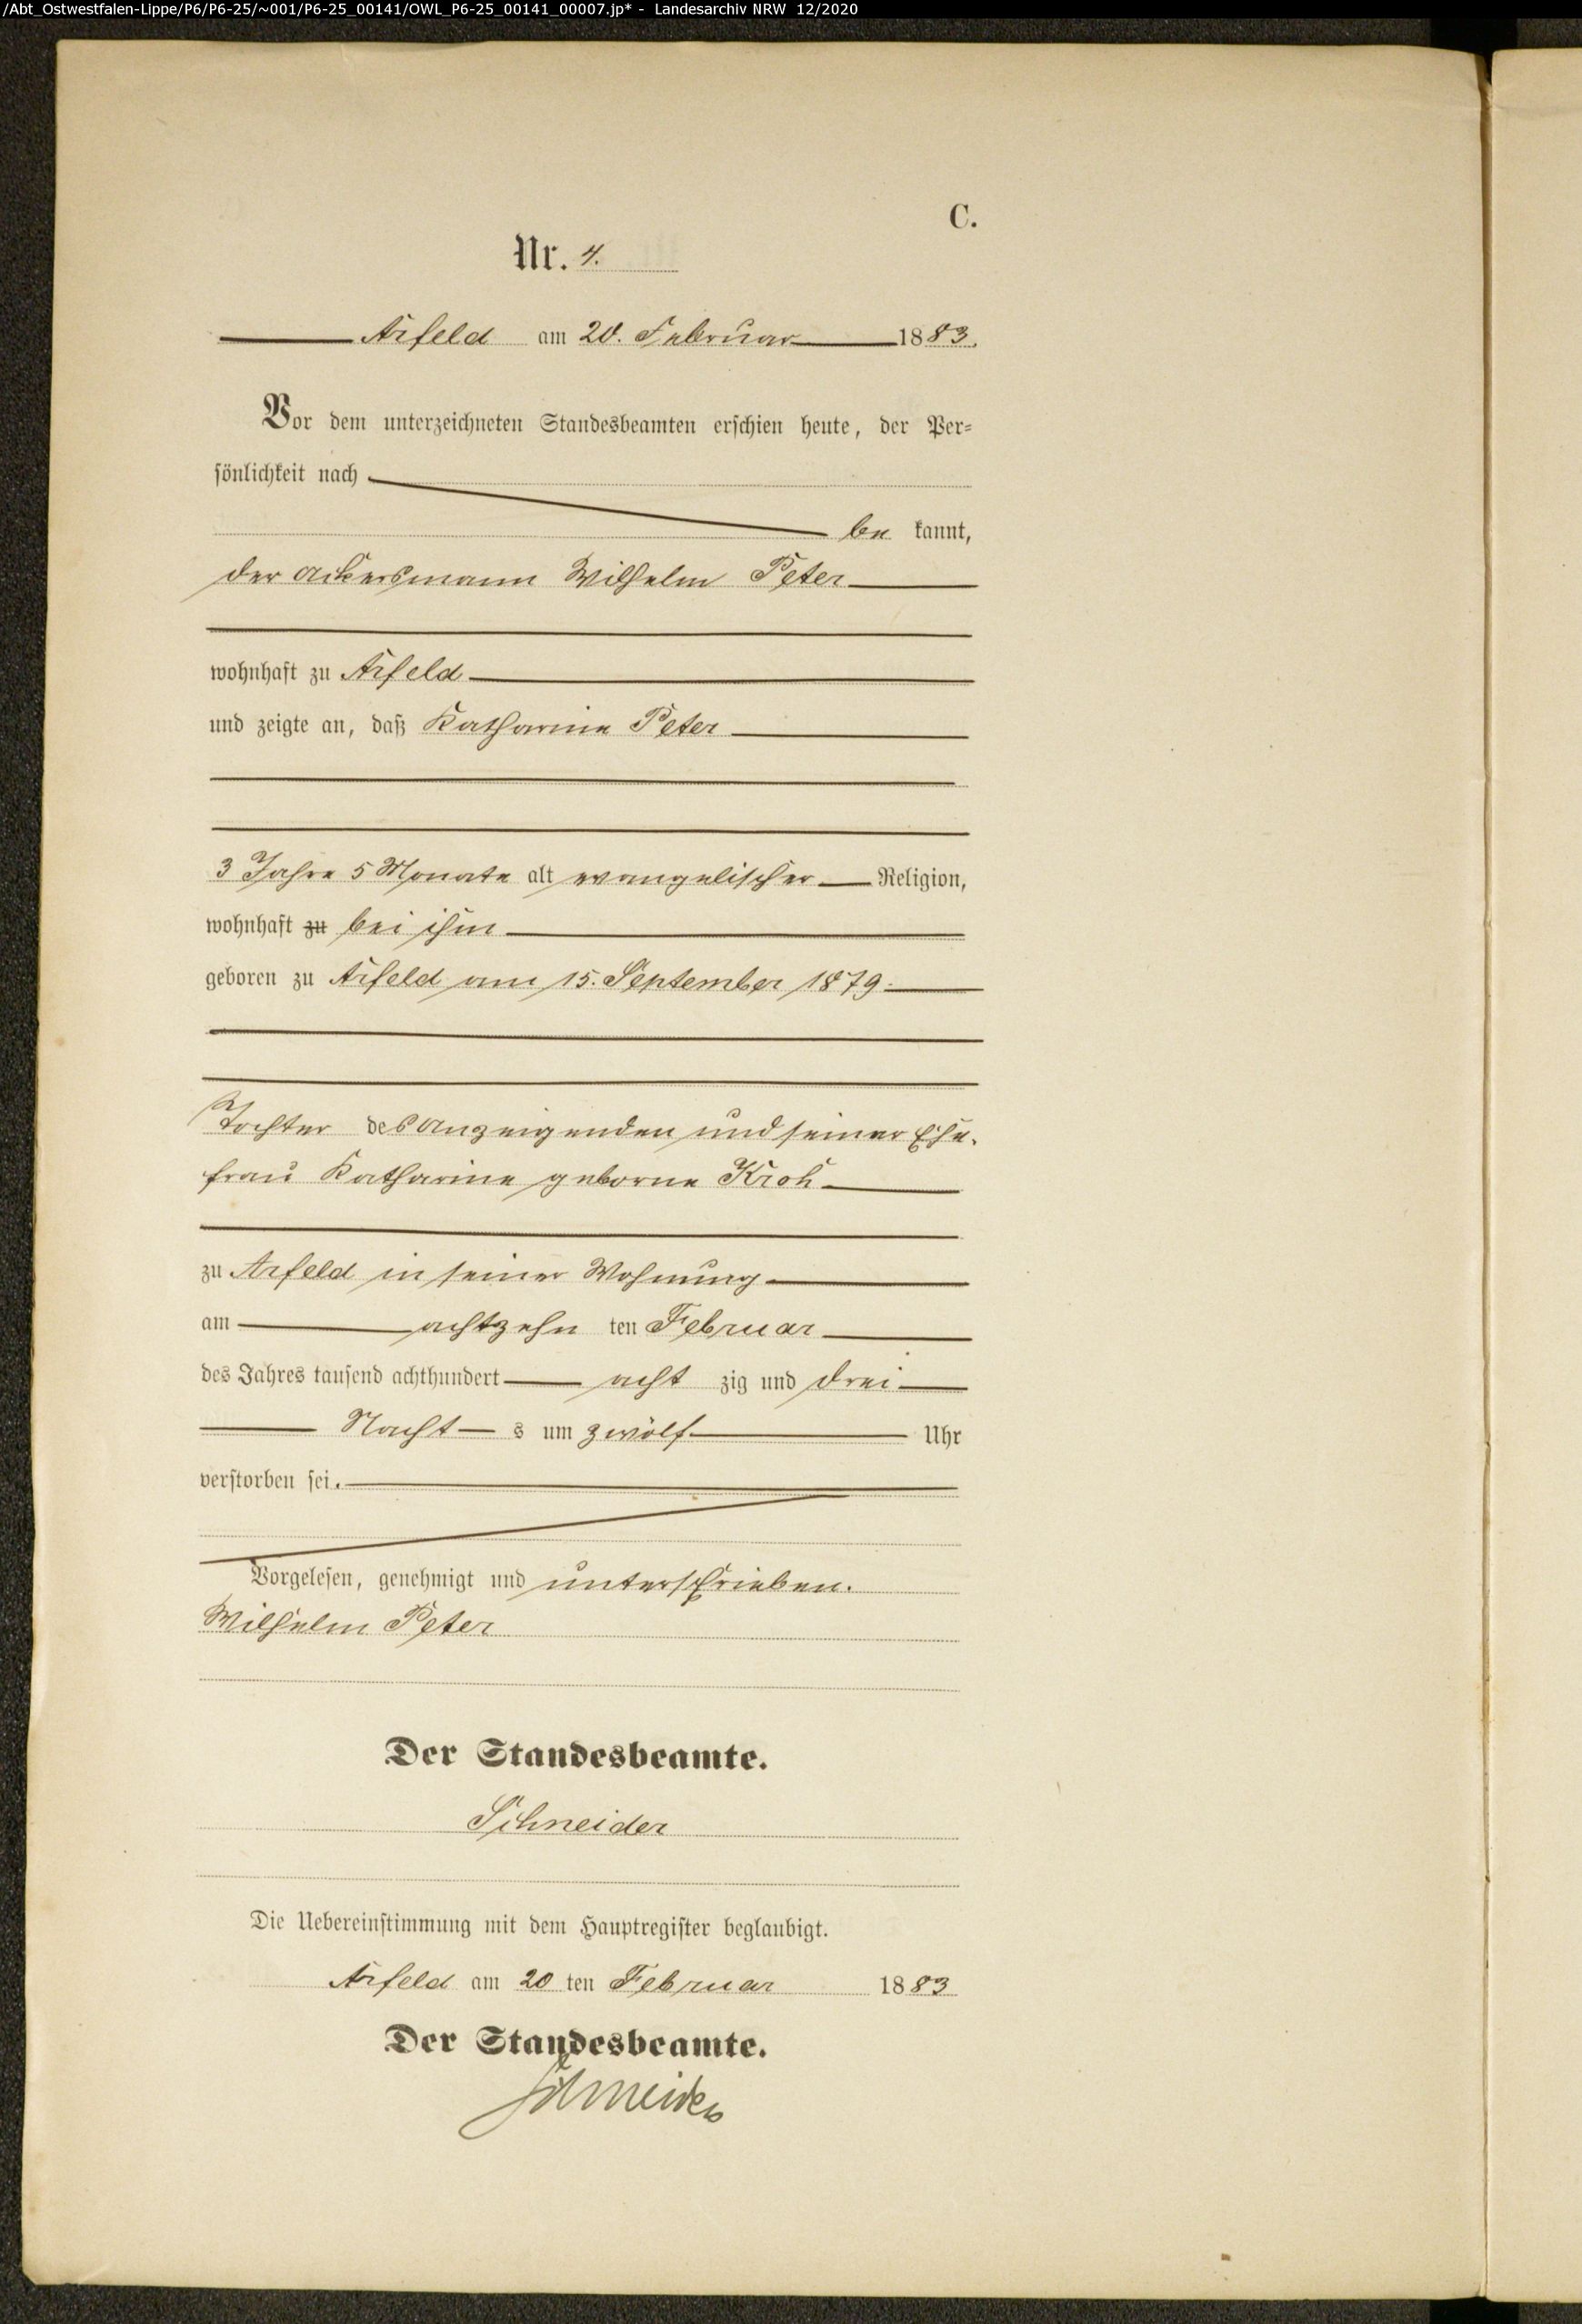 /Abt_Ostwestfalen-Lippe/P6/P6-25/~001/P6-25_00141/OWL_P6-25_00141_00007.jp* - Landesarchiv NRW 12/2020
C.
Nr. 4.
Arfeld am 20. Februar 1883.
Vor dem unterzeichneten Standesbeamten erschien heute, der Per-
sönlichkeit nach
be kannt,
der Ackersmann Wilhelm Peter
wohnhaft zu Arfeld
und zeigte an, daß Katharine Peter
3 Jahre 5 Monate alt evangelischer Religion,
wohnhaft zu bei ihm
geboren zu Arfeld am 15. September 1879.
Tochter des Anzeigenden und seiner Ehe-
frau Katharine geborne Kroh
zu Arfeld in seiner Wohnung
am achtzehn ten Februar
des Jahres tausend achthundert acht zig und drei
Nacht s um zwölf Uhr
verstorben sei.
Vorgelesen, genehmigt und unterschrieben.
Wilhelm Peter
Der Standesbeamte.
Schneider
Die Uebereinstimmung mit dem Hauptregister beglaubigt.
Arfeld am 20 ten Februar 1883
Der Standesbeamte.
Schneider